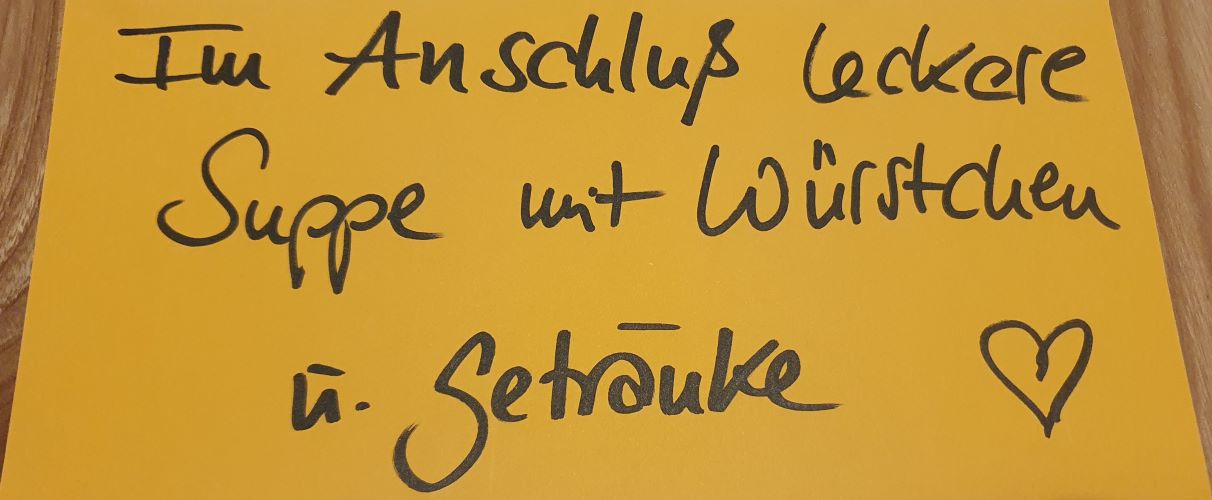 Im Anschluß leckere
Suppe mit Würstchen
u. Getränke